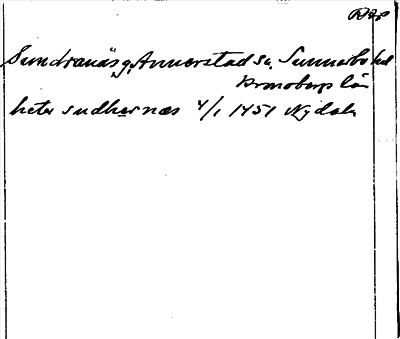 Sundranäs g. Annerstad sn. Sunnerbo hd
Kronobergs län
hete sudhernæs 4/1 1451 Nydala